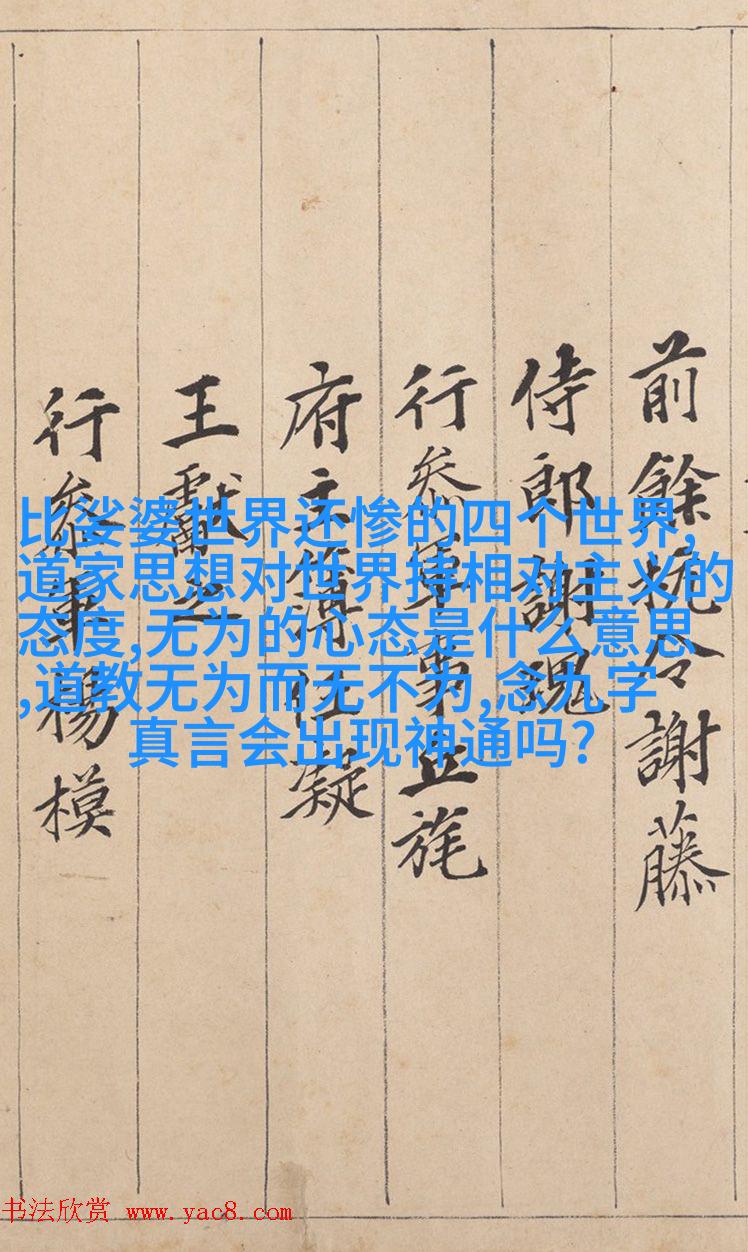 前餘杭令謝藤
侍郎謝瑰
行叅軍事丘旄
府主簿任凝
王獻之
行叅軍楊模
比娑婆世界还惨的四个世界,
道家思想对世界持相对主义的
态度,无为的心态是什么意思
,道教无为而无不为,念九字
真言会出现神通吗?
书法欣赏 www.yac8.com